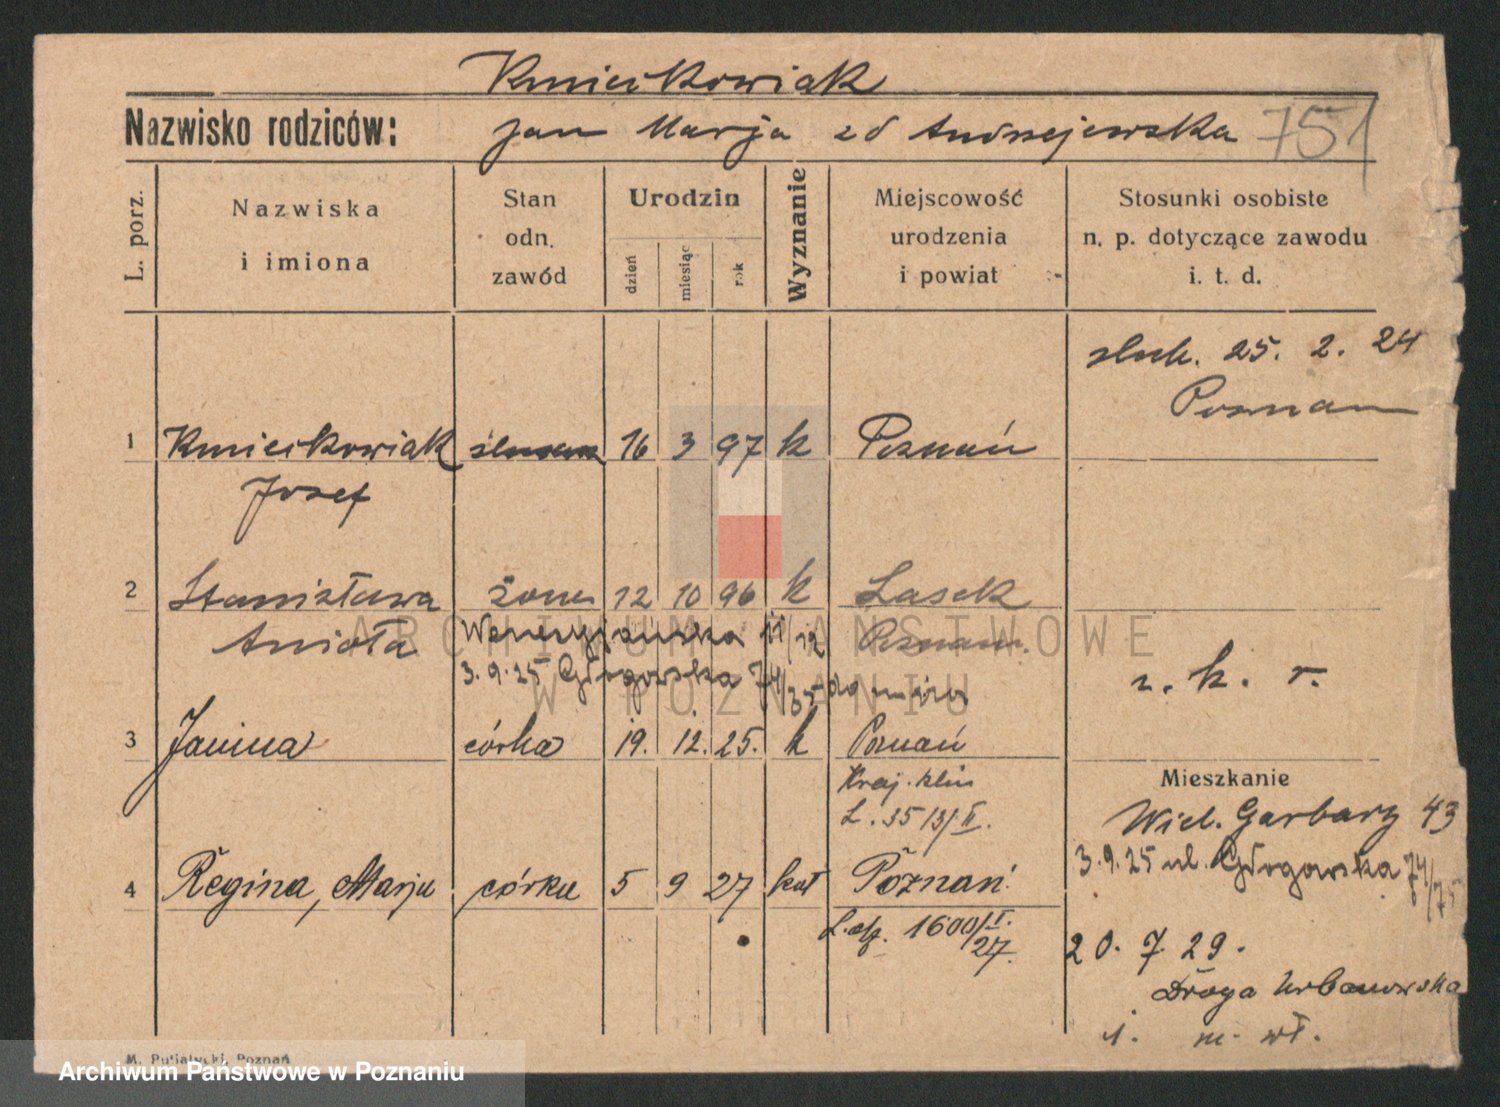 Kmiećkowiak
Nazwisko rodziców: Jan Marja zd Andrzejewska 751
L. porz.
Nazwiska i imiona
Stan odn. zawód
Urodzin
dzień
miesiąc
rok
Wyznanie
Miejscowość urodzenia i powiat
Stosunki osobiste n. p. dotyczące zawodu i. t. d.
ślub. 25. 2. 24
Poznań
1 Kmiećkowiak ślusarz 16 3 97 k Poznań
Józef
2 Stanisława żona 12 10 96 k Lasek
Anioła Wenecjańska 11/12 Poznań
3.9.25 Głogowska 74/75
r. k. r.
3 Janina córka 19. 12. 25. k Poznań
Kraj. klin
L. 3513/II.
Mieszkanie
Wiel. Garbary 43
3.9.25 ul. Głogowska 74/75
4 Regina, Marja córka 5 9 27 kat Poznań
1600/I. 27.
20. 7 29.
Droga Urbanowska
1. m. wł.
M. Putiatycki, Poznań
ARCHIWUM PAŃSTWOWE
W POZNANIU
Archiwum Państwowe w Poznaniu